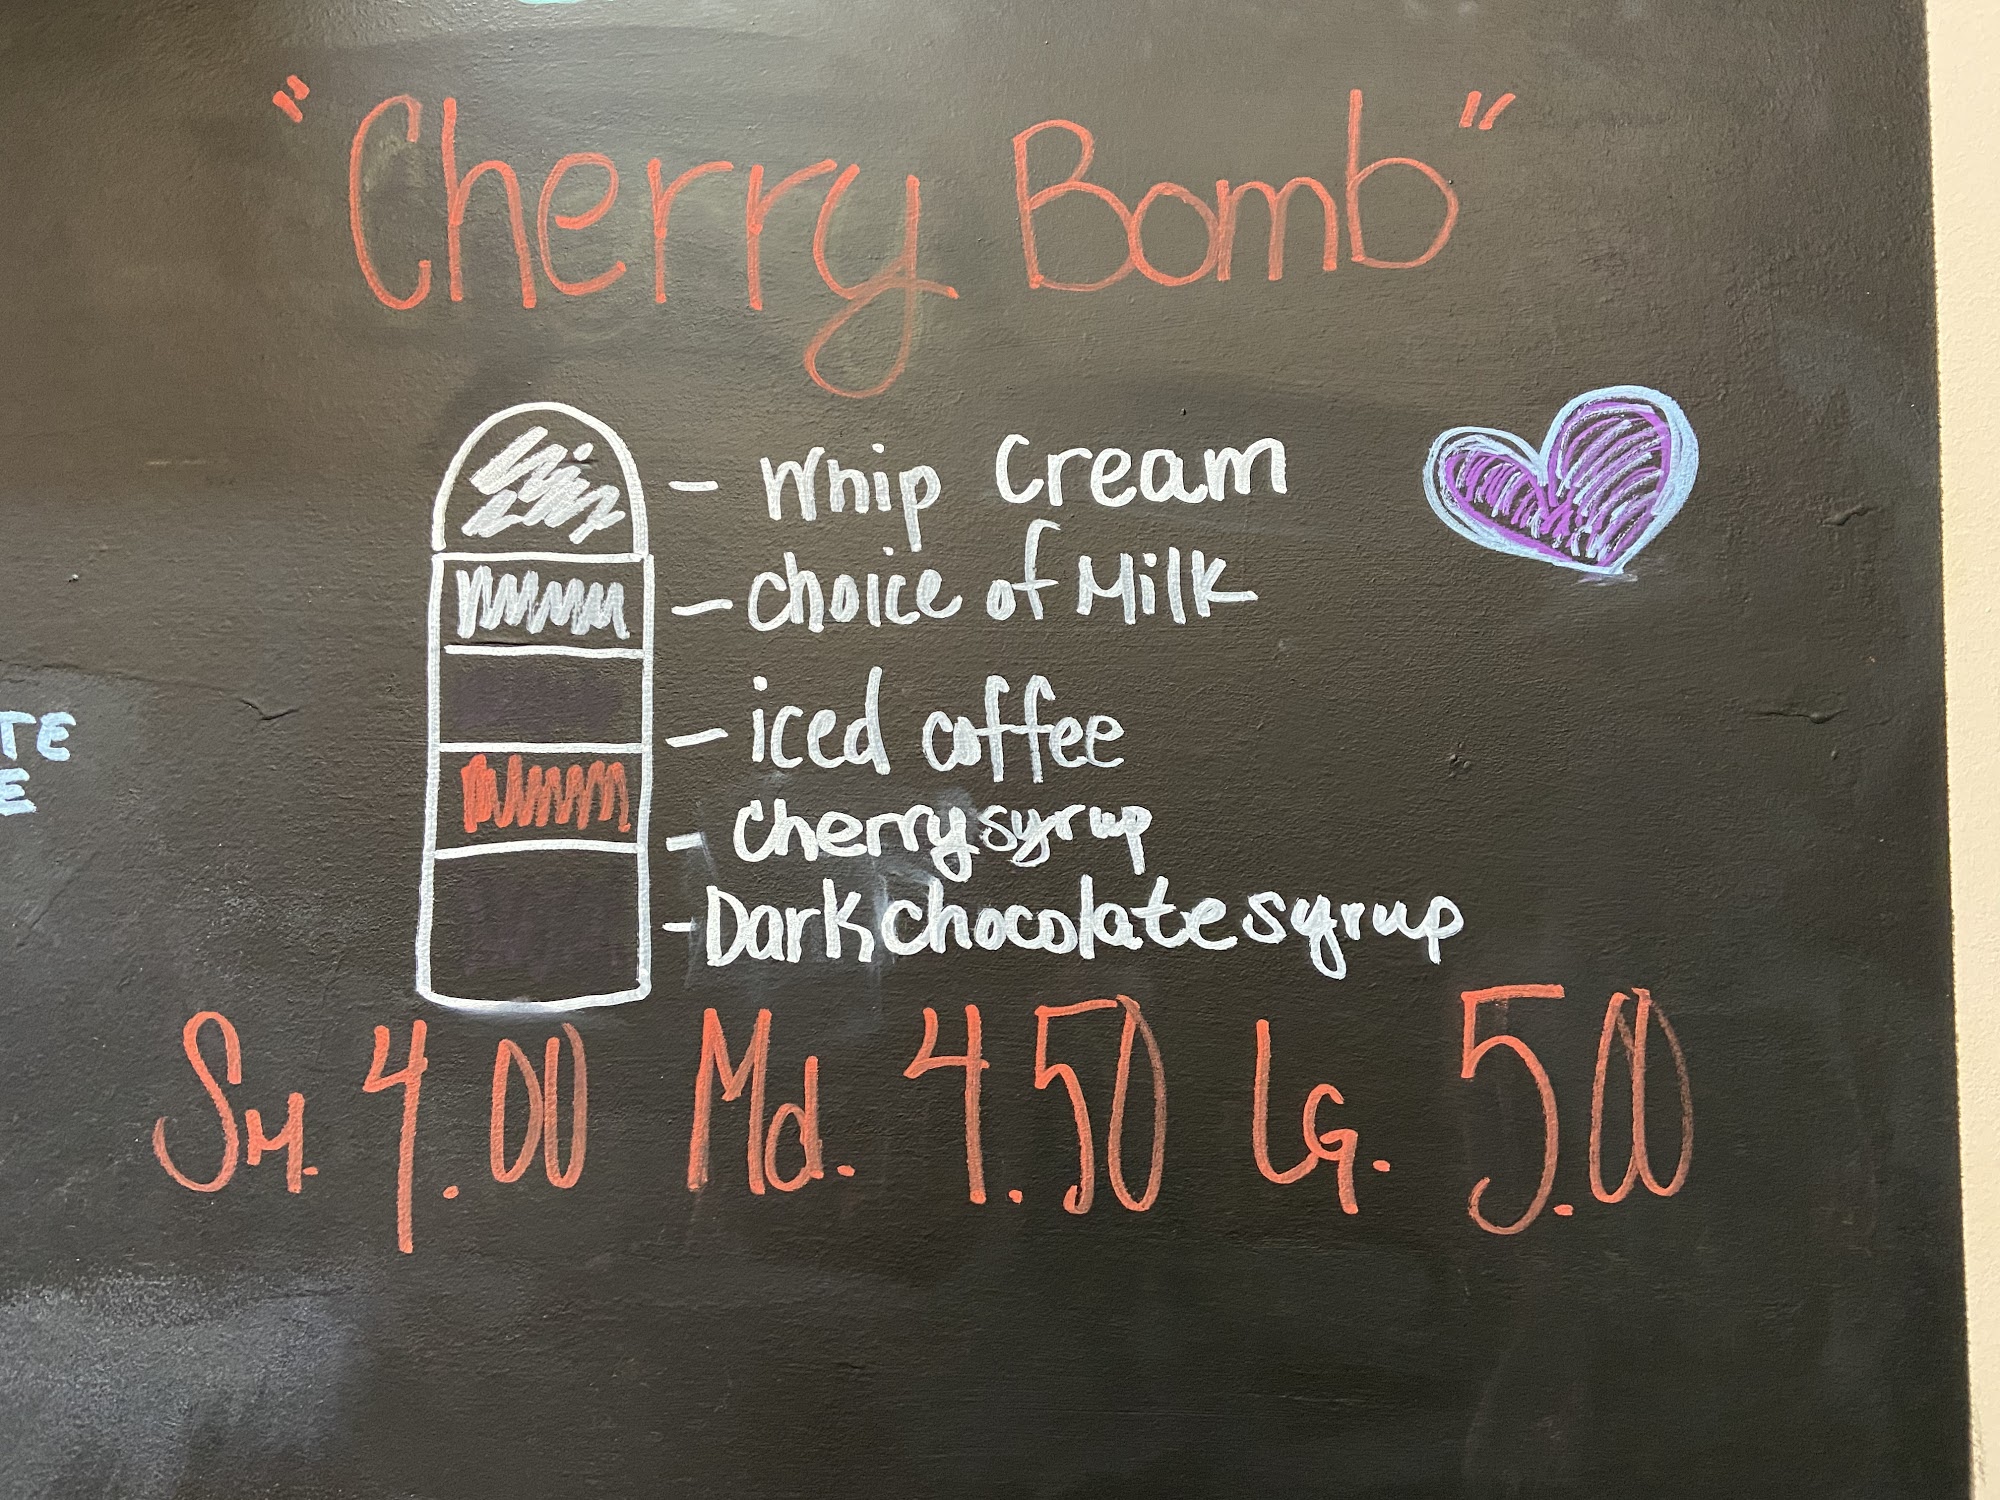 "Cherry Bomb"
- Whip Cream
- choice of Milk
- iced coffee
- cherry syrup
- Dark chocolate syrup
Sm. 4.00 Md. 4.50 LG. 5.00
TE
E